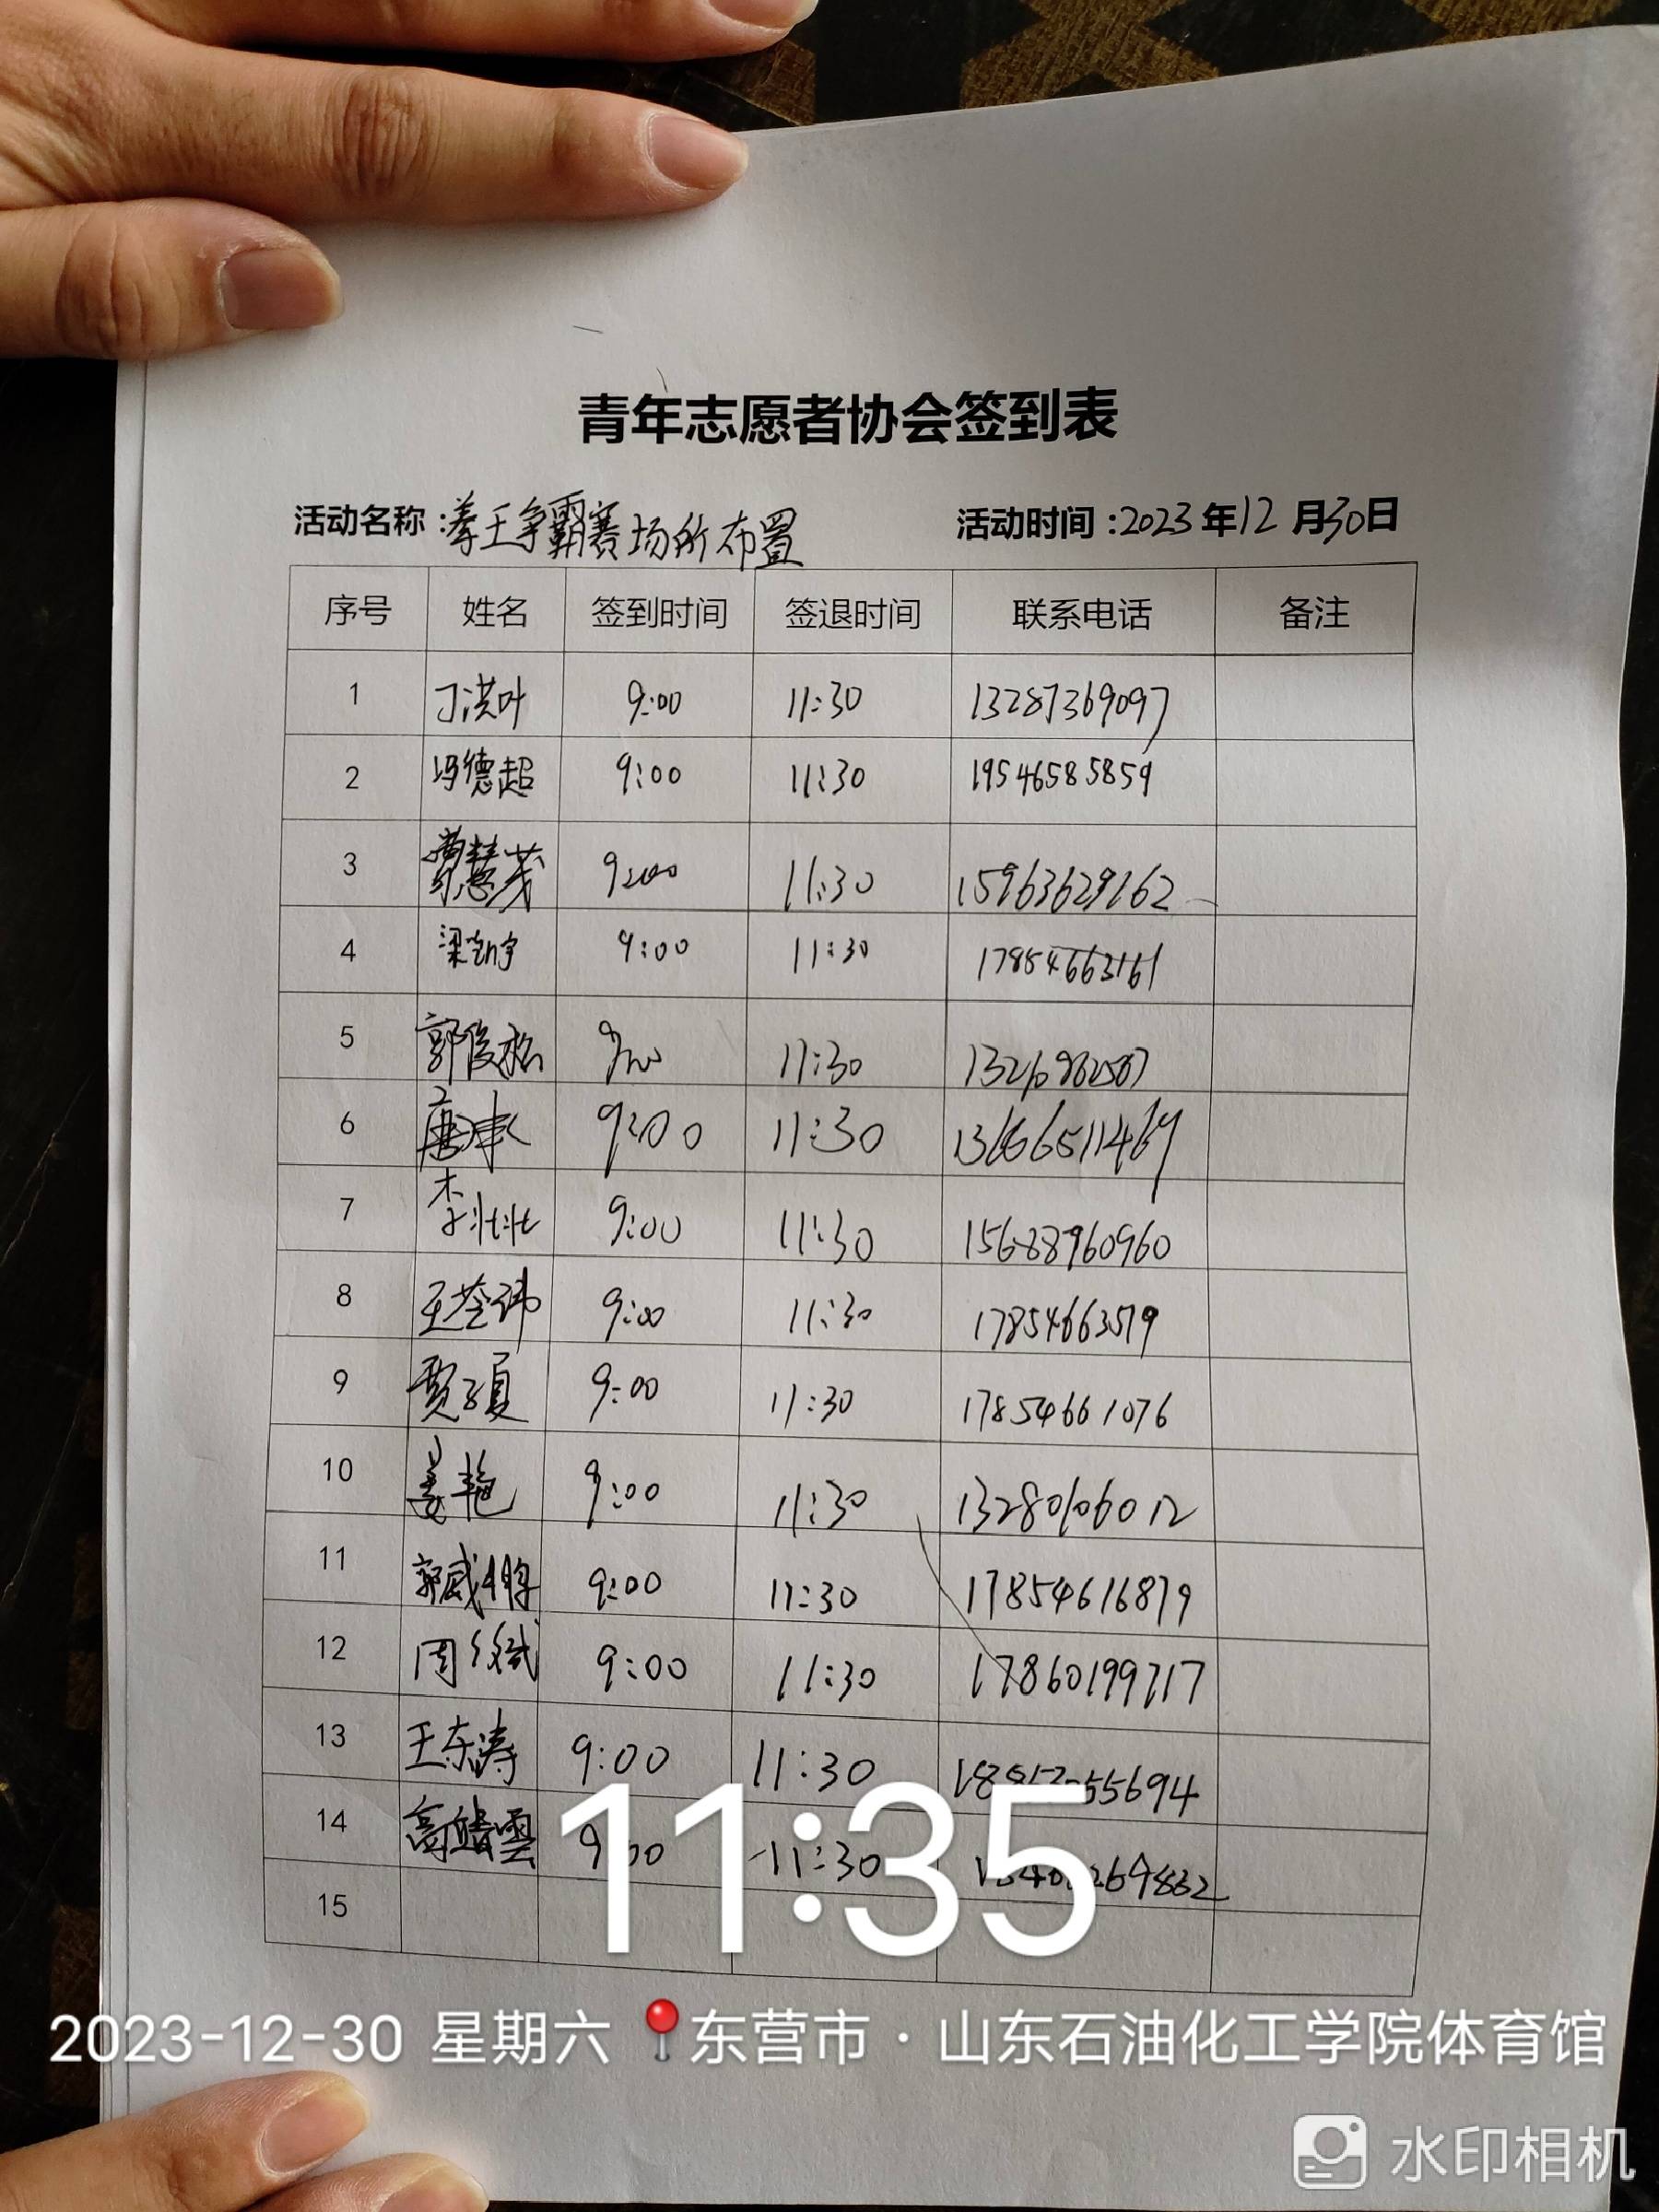 青年志愿者协会签到表
活动名称:拳王争霸赛场所布置 活动时间:2023年12月30日
序号 姓名 签到时间 签退时间 联系电话 备注
1 丁洪叶 9:00 11:30 13287369097
2 冯德超 9:00 11:30 19546585859
3 慧茂 9:00 11:30 15963629162
4 梁凯宇 9:00 11:30 17854663161
5 郭俊松 9:00 11:30
6 唐 9:00 11:30
7 李壮壮 9:00 11:30 15688960960
8 王 玮 9:00 11:30 17854663579
9 贾子夏 9:00 11:30 17854661076
10 姜艳 9:00 11:30 13280106012
11 郭威鹏 9:00 11:30 17854616879
12 周 斌 9:00 11:30 17860199717
13 王东涛 9:00 11:30
14 高皓雲 9:00 11:30
15
11:35
2023-12-30 星期六 东营市·山东石油化工学院体育馆
水印相机